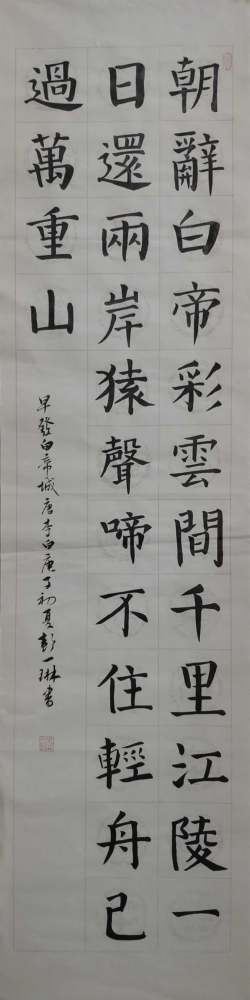 朝辭白帝彩雲間千里江陵一
日還兩岸猿聲啼不住輕舟已
過萬重山
早發白帝城唐李白庚子初夏彭一琳書